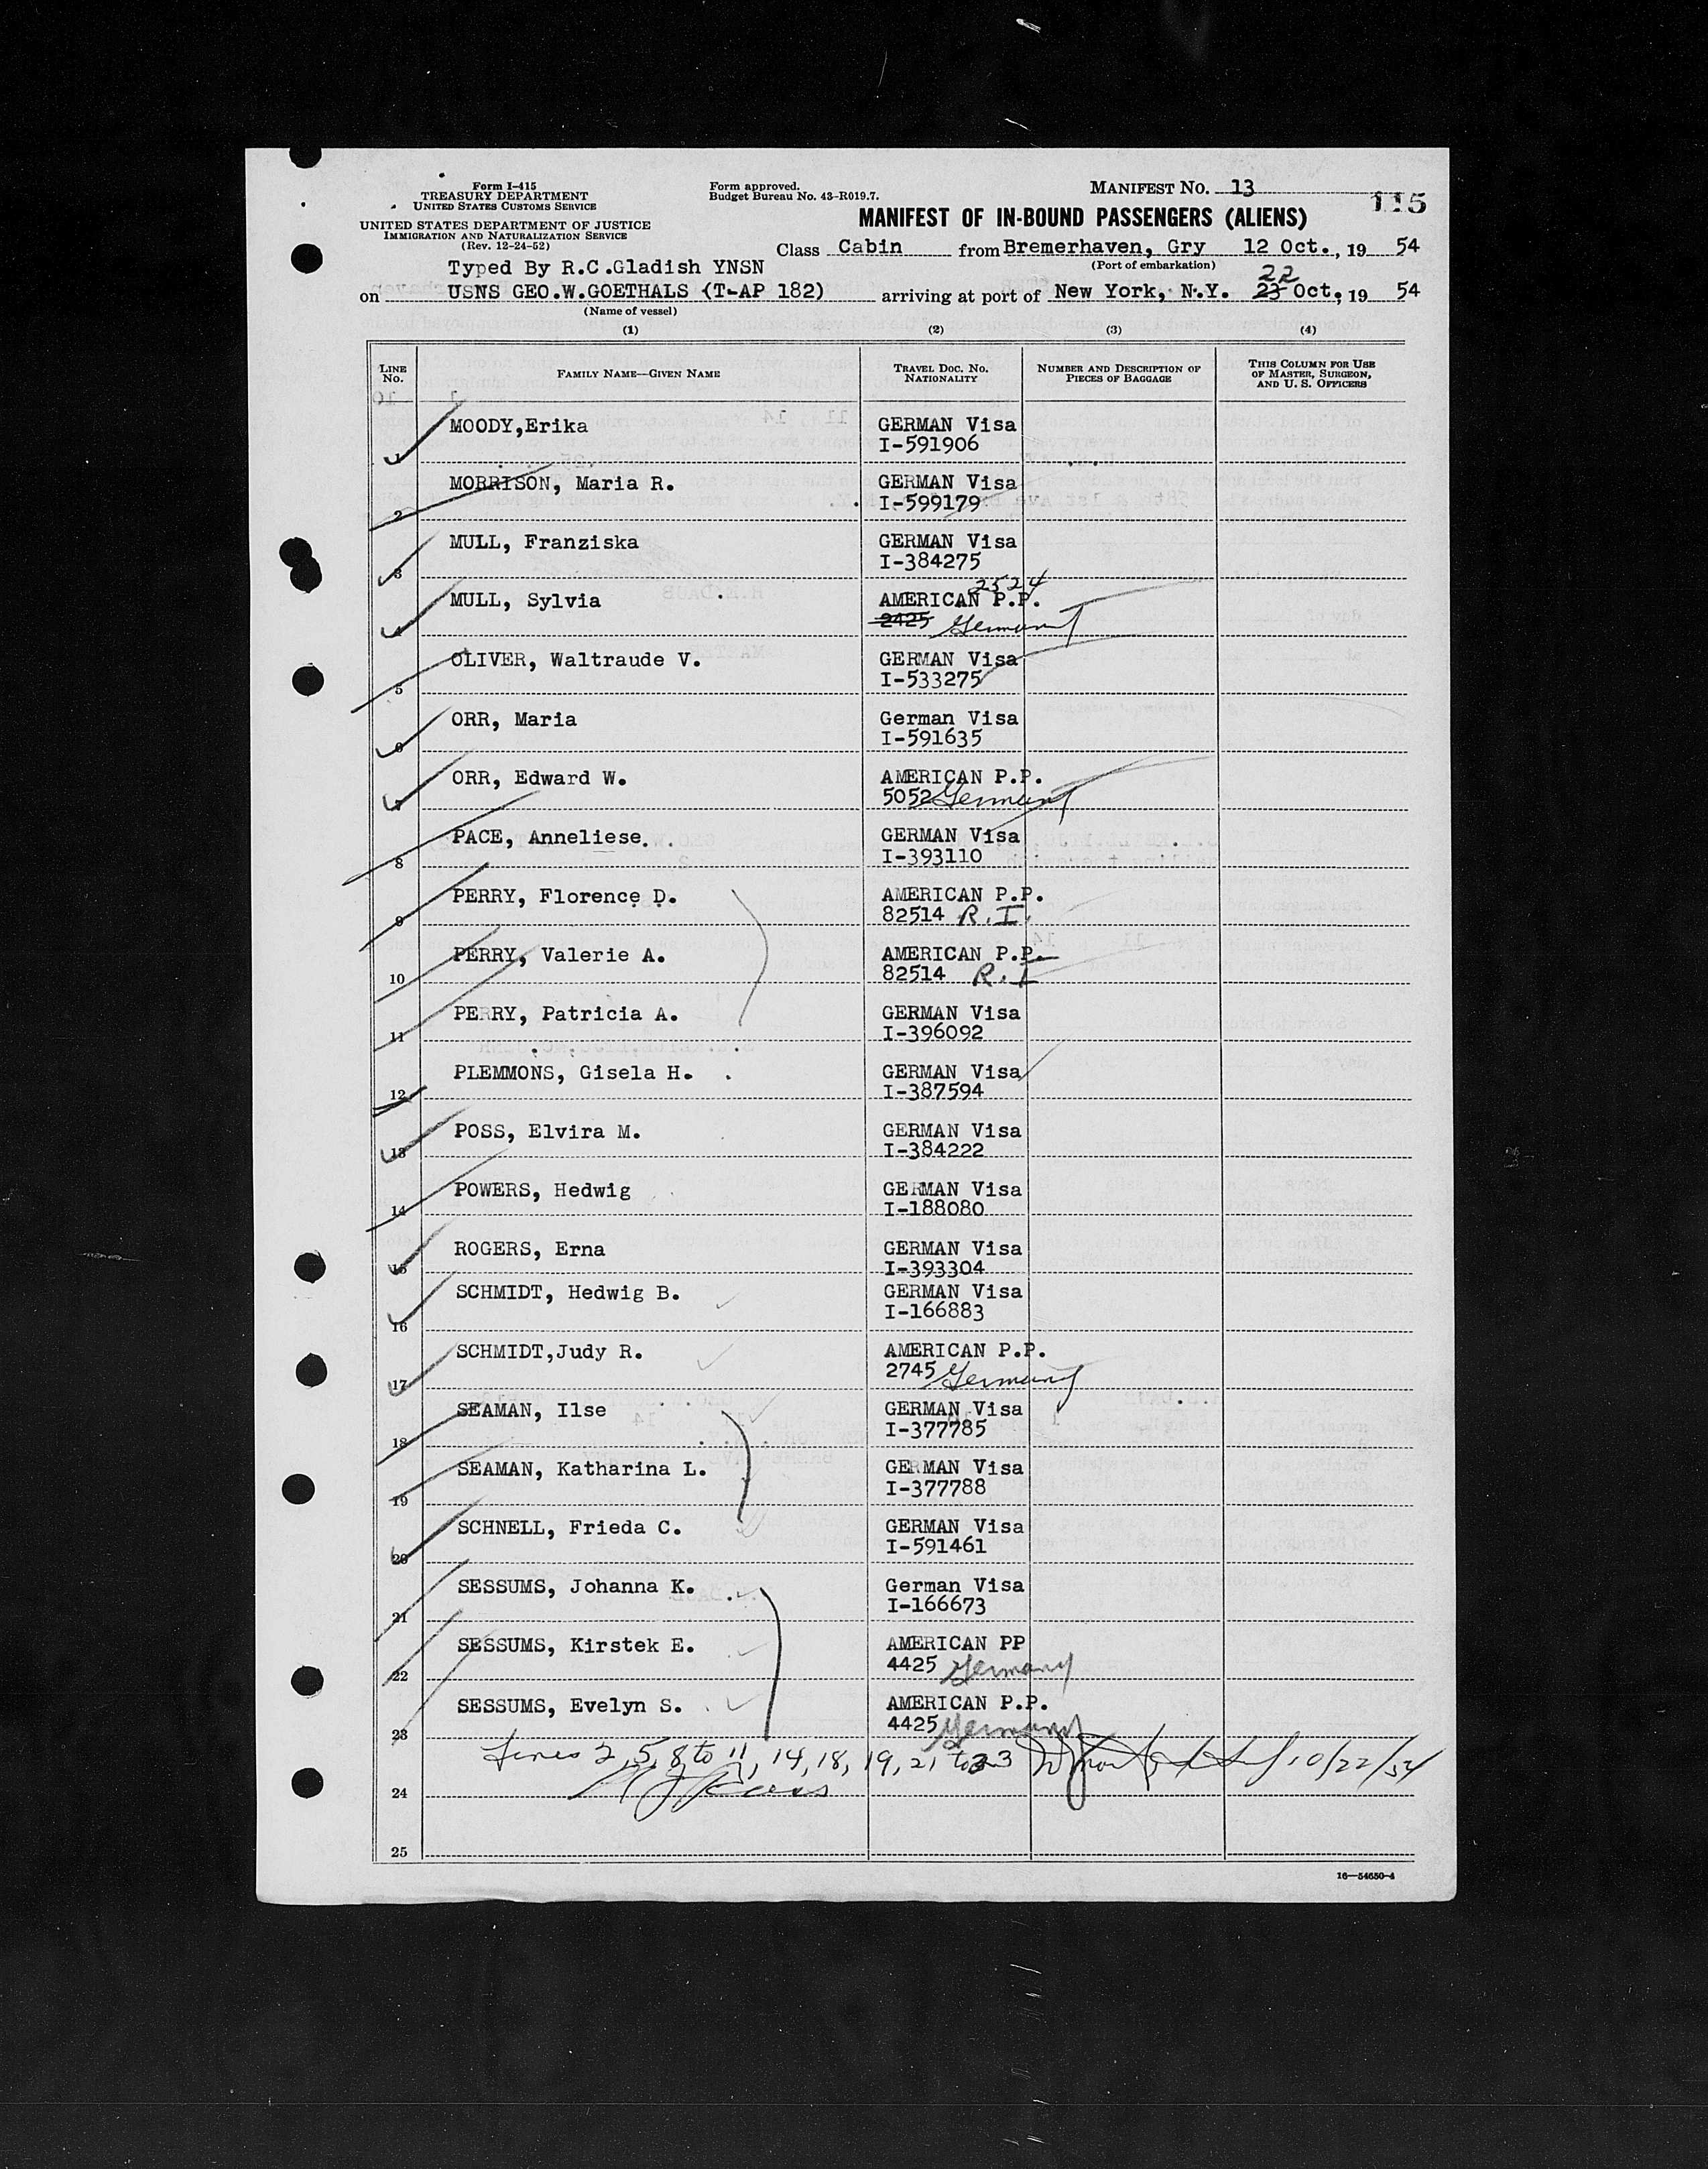 Form I-415
TREASURY DEPARTMENT
UNITED STATES CUSTOMS SERVICE
UNITED STATES DEPARTMENT OF JUSTICE
IMMIGRATION AND NATURALIZATION SERVICE
(Rev. 12-24-52)
Form approved.
Budget Bureau No. 43-R019.7.
MANIFEST No. 13
115
MANIFEST OF IN-BOUND PASSENGERS (ALIENS)
Class Cabin from Bremerhaven, Gry 12 Oct., 19 54
(Port of embarkation)
Typed By R.C.Gladish YNSN
22
on USNS GEO.W.GOETHALS (T-AP 182) arriving at port of New York, N.Y. 23 Oct, 19 54
(Name of vessel)
(1) (2) (3) (4)
LINE No. FAMILY NAME—GIVEN NAME TRAVEL DOC. NO. NATIONALITY NUMBER AND DESCRIPTION OF PIECES OF BAGGAGE THIS COLUMN FOR USE OF MASTER, SURGEON, AND U. S. OFFICERS
MOODY,Erika GERMAN Visa
1 I-591906
MORRISON, Maria R. GERMAN Visa
2 I-599179
MULL, Franziska GERMAN Visa
3 I-384275
2524
MULL, Sylvia AMERICAN P.P.
4 2425 Germany
OLIVER, Waltraude V. GERMAN Visa
5 I-533275
ORR, Maria German Visa
6 I-591635
ORR, Edward W. AMERICAN P.P.
7 5052 Germany
PACE, Anneliese GERMAN Visa
8 I-393110
PERRY, Florence D. AMERICAN P.P.
9 82514 R.I.
PERRY, Valerie A. AMERICAN P.P.
10 82514 R.I
PERRY, Patricia A. GERMAN Visa
11 I-396092
PLEMMONS, Gisela H. GERMAN Visa
12 I-387594
POSS, Elvira M. GERMAN Visa
13 I-384222
POWERS, Hedwig GERMAN Visa
14 I-188080
ROGERS, Erna GERMAN Visa
15 I-393304
SCHMIDT, Hedwig B. GERMAN Visa
16 I-166883
SCHMIDT,Judy R. AMERICAN P.P.
17 2745 Germany
SEAMAN, Ilse GERMAN Visa
18 I-377785
SEAMAN, Katharina L. GERMAN Visa
19 I-377788
SCHNELL, Frieda C. GERMAN Visa
20 I-591461
SESSUMS, Johanna K. German Visa
21 I-166673
SESSUMS, Kirstek E. AMERICAN PP
22 4425 Germany
SESSUMS, Evelyn S. AMERICAN P.P.
23 4425 Germany
Lines 2, 5, 8 to 11, 14, 18, 19, 21 to 23 10/22/54
24
25
16—54650-4